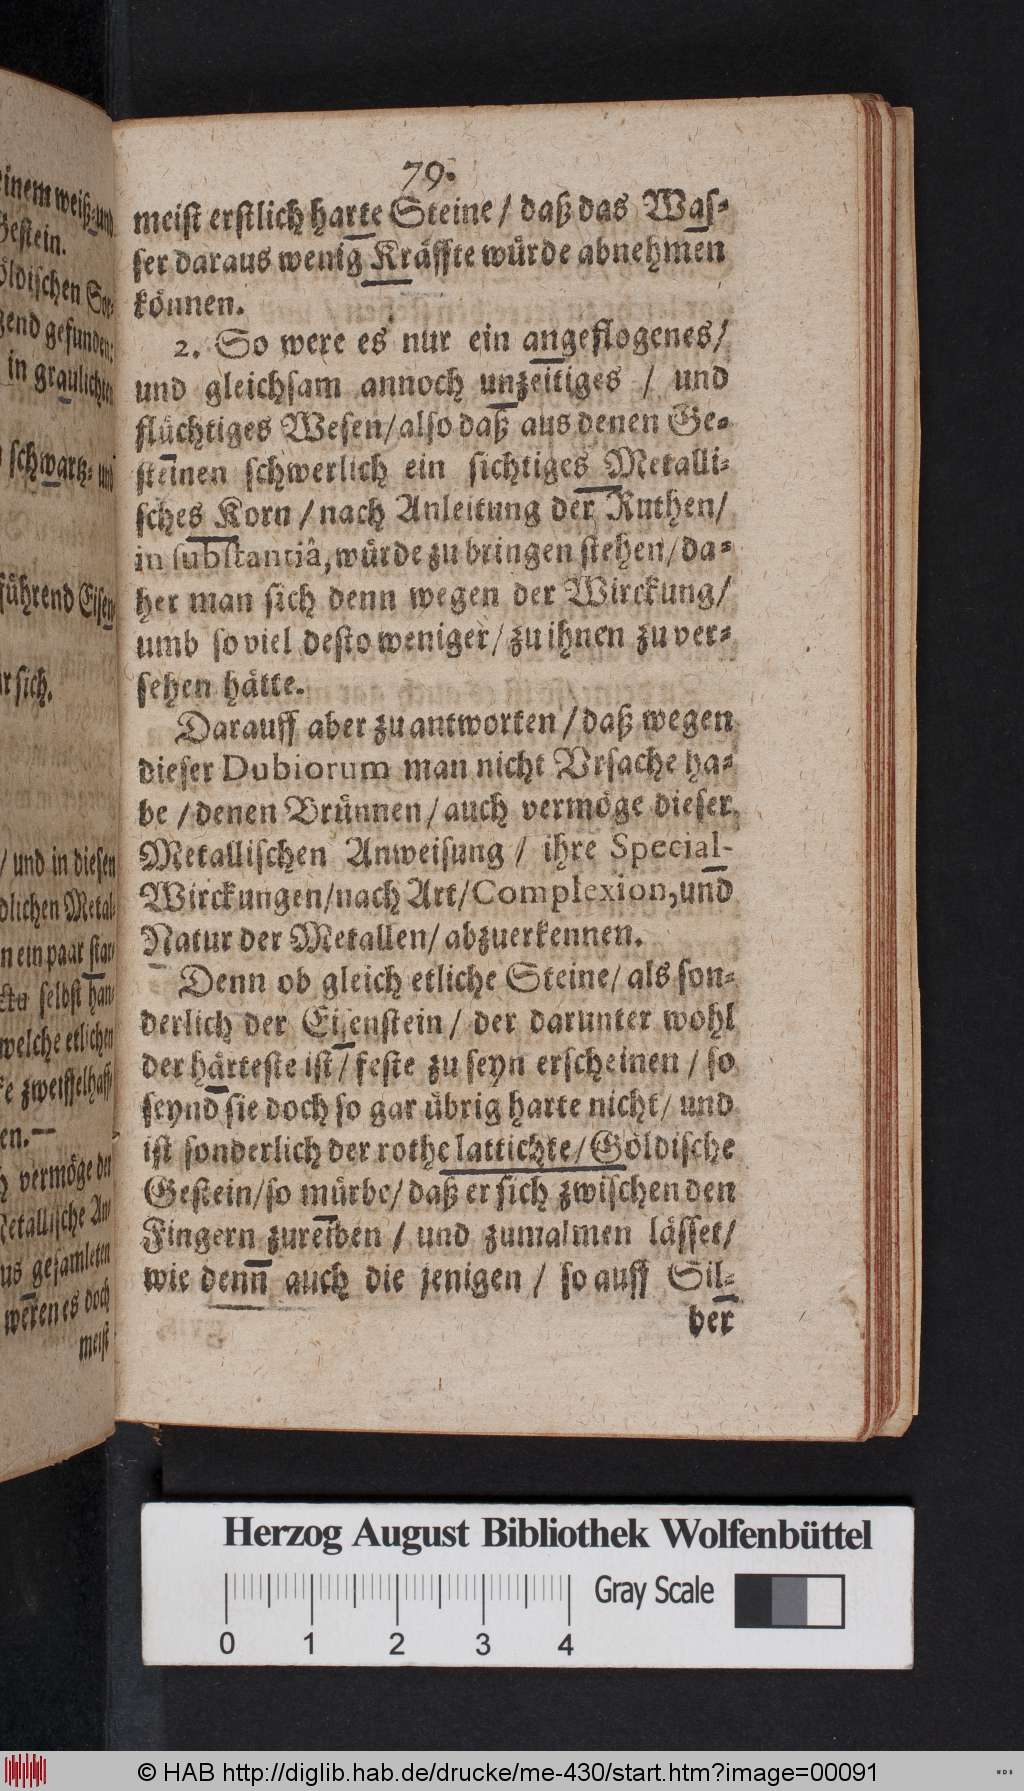 einem weiß- und
Gestein.
gend gefunden:
in graulichten
schwartz- und
führend Eisen
sich.
/ und in diesen
n ein paar star-
selbst han-
welche etlichen
zweiffelhaff-
en.—
vermöge der
Metallische An-
gesamleten
weren es doch
meist
79.
meist erstlich harte Steine / daß das Was-
ser daraus wenig Kräffte würde abnehmen
können.
2. So were es nur ein angeflogenes /
und gleichsam annoch unzeitiges / und
flüchtiges Wesen / also daß aus denen Ge-
steinen schwerlich ein sichtiges Metalli-
sches Korn / nach Anleitung der Ruthen /
in substantiâ, würde zu bringen stehen / da-
her man sich denn wegen der Wirckung /
umb so viel desto weniger / zu ihnen zu ver-
sehen hätte.
Darauff aber zu antworten / daß wegen
dieser Dubiorum man nicht Vrsache ha-
be / denen Brünnen / auch vermöge dieser
Metallischen Anweisung / ihre Special-
Wirckungen / nach Art / Complexion, und
Natur der Metallen / abzuerkennen.
Denn ob gleich etliche Steine / als son-
derlich der Eisenstein / der darunter wohl
der härteste ist / feste zu seyn erscheinen / so
seynd sie doch so gar übrig harte nicht / und
ist sonderlich der rothe lattichte / Göldische
Gestein / so mürbe / daß er sich zwischen den
Fingern zureiben / und zumalmen lässet /
wie denn auch die jenigen / so auff Sil-
ber
Herzog August Bibliothek Wolfenbüttel
Gray Scale
0 1 2 3 4
© HAB http://diglib.hab.de/drucke/me-430/start.htm?image=00091